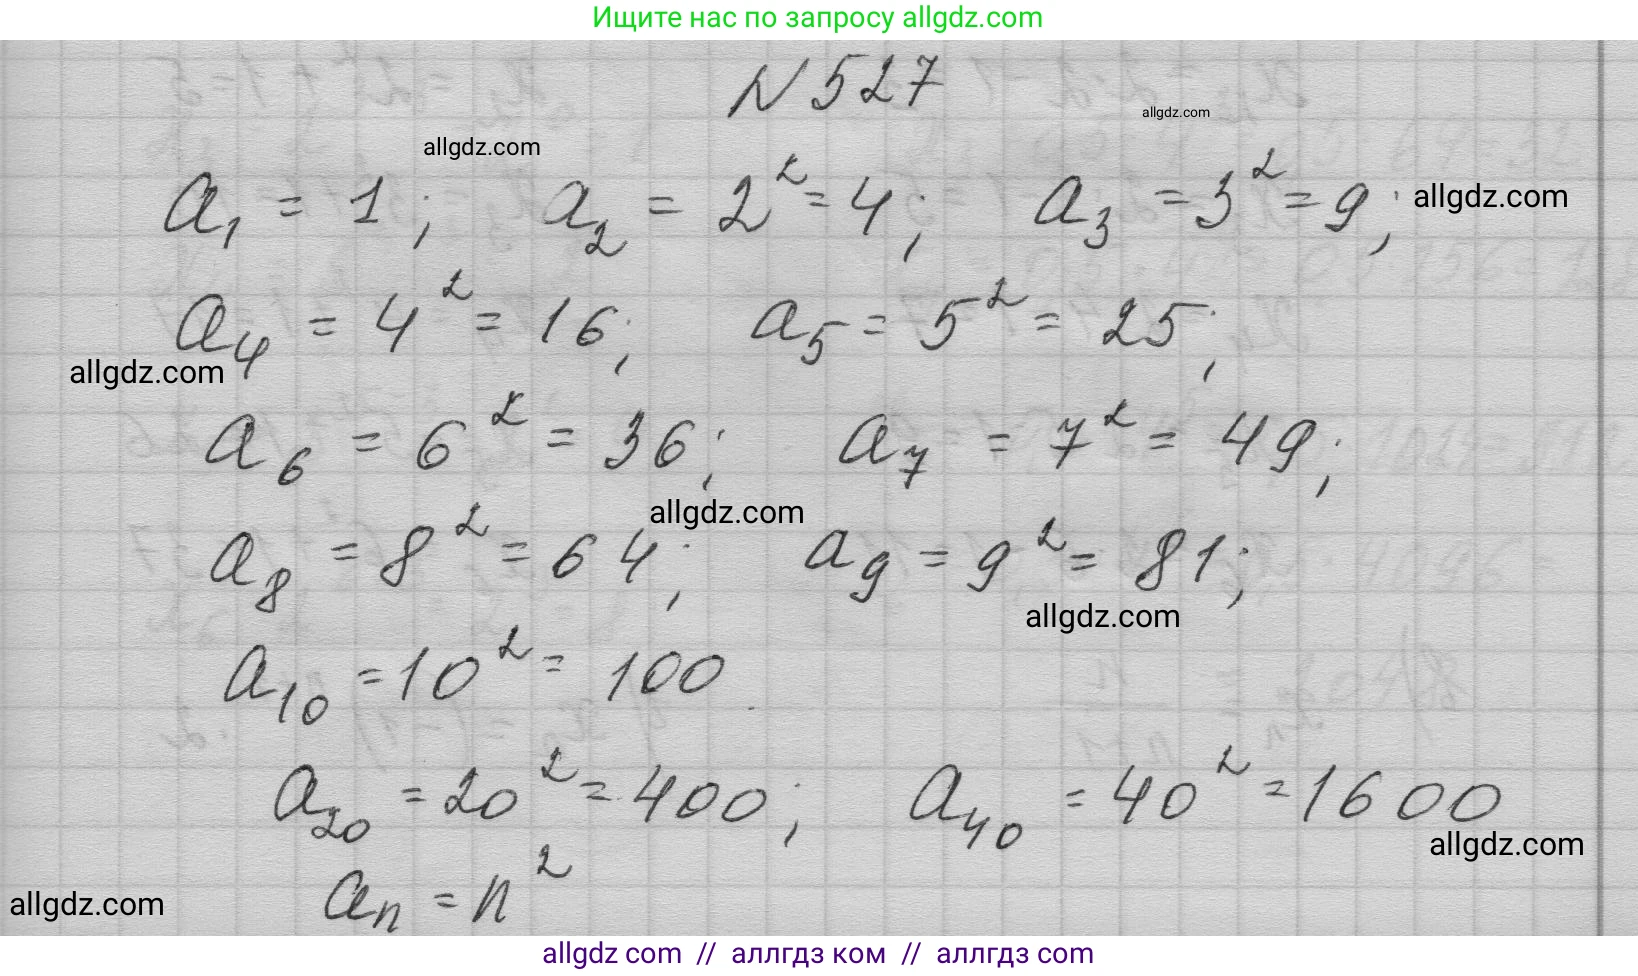 Ищите нас по запросу allgdz.com
N 527
allgdz.com
allgdz.com
a₁ = 1; a₂ = 2² = 4; a₃ = 3² = 9;
allgdz.com
a₄ = 4² = 16; a₅ = 5² = 25;
allgdz.com
a₆ = 6² = 36; a₇ = 7² = 49;
allgdz.com
a₈ = 8² = 64; a₉ = 9² = 81;
allgdz.com
a₁₀ = 10² = 100
a₂₀ = 20² = 400; a₄₀ = 40² = 1600
allgdz.com
aₙ = n²
allgdz.com
allgdz com // аллгдз ком // allgdz.com